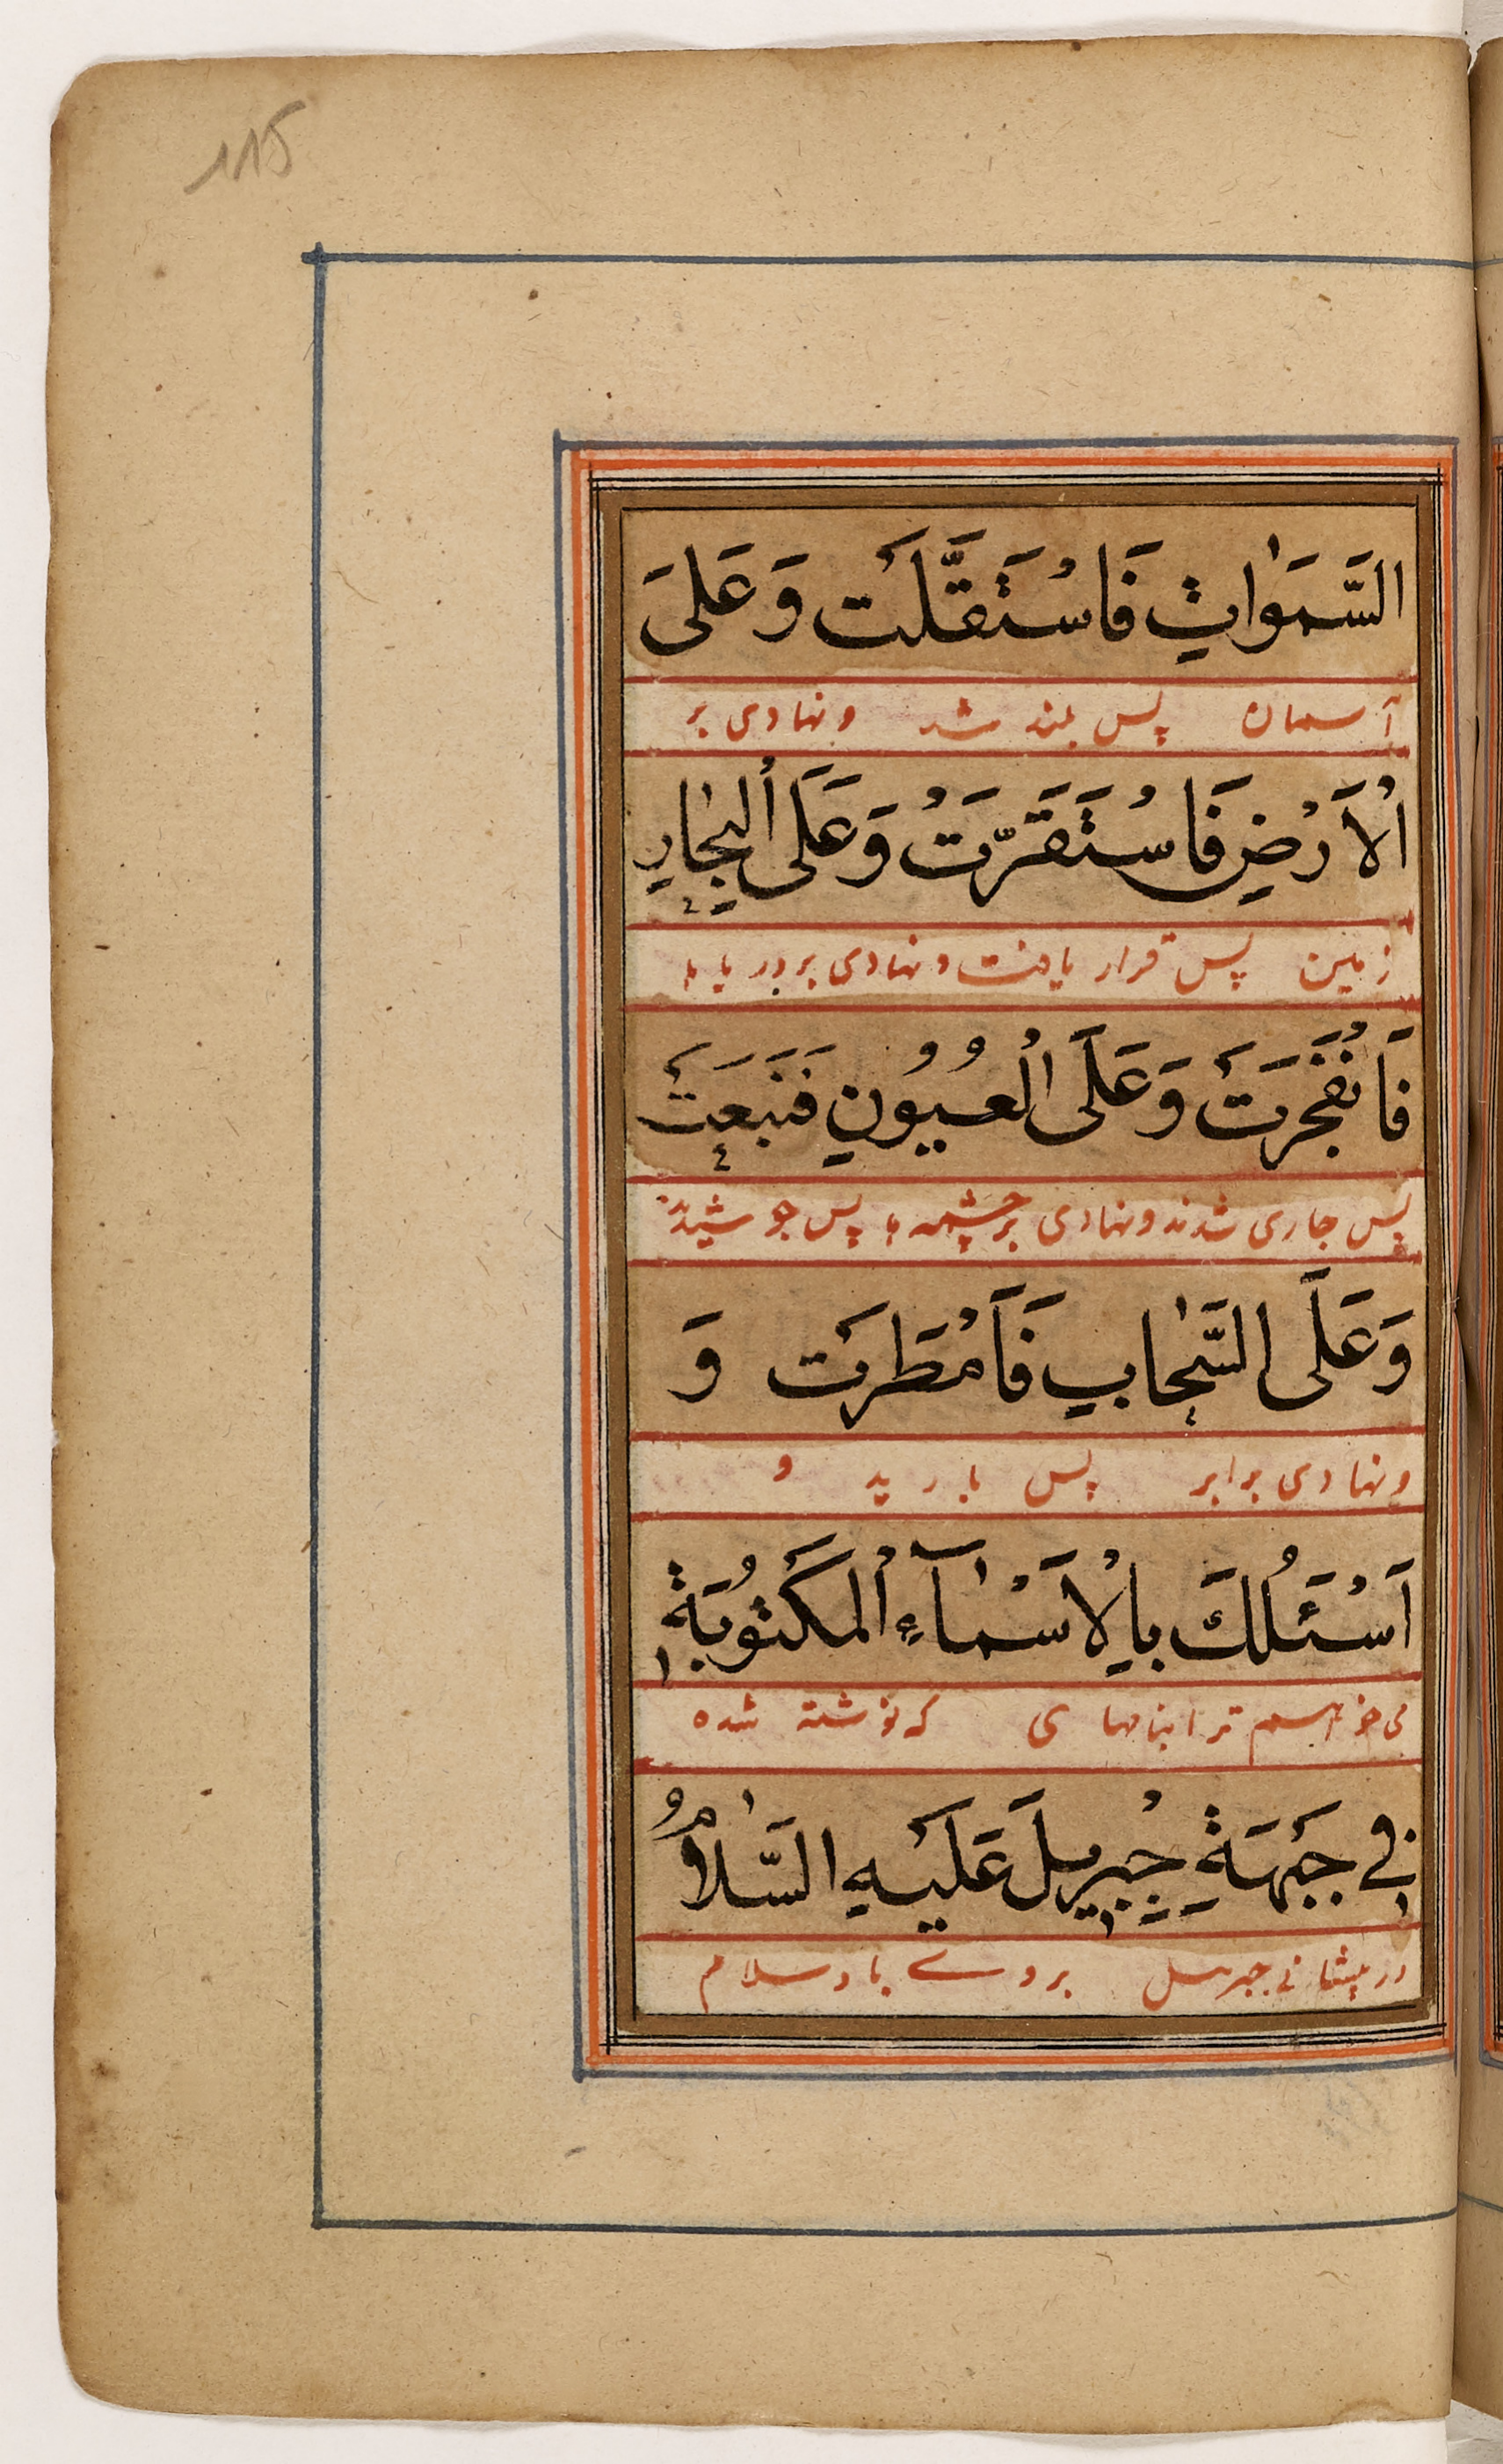 115
السَّمَوٰاتِ فَاسْتَقَلَّتْ وَعَلَی
آسمان پس بلند شد و نهادی بر
اْلاَرْضِ فَاسْتَقَرَّتْ وَعَلَی اْلبِحٰارِ
زمین پس قرار یافت و نهادی بر دریاها
فَانْفَجَرَتْ وَعَلَی اْلعُیُونِ فَنَبَعَتْ
پس جاری شدند و نهادی بر چشمه ها پس جوشیدند
وَعَلَی السَّحٰابِ فَاَمْطَرَتْ وَ
و نهادی بر ابر پس بارید و
اَسْئَلُكَ بِاْلاَسْمٰآءِ اْلمَكْتُوبَةِ
می خواهم ترا بنامهای که نوشته شده
فِی جَبْهَةِ جِبْرِیلَ عَلَیْهِ السَّلٰامُ
در پیشانی جبرئیل بر وے باد سلام